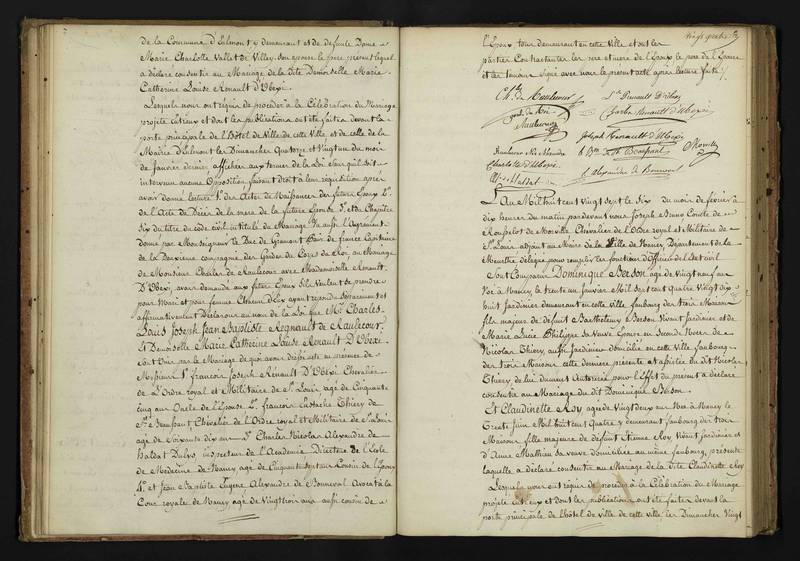 de la Commune d'Ulmont y demeurant et de defunte Dame
Marie Charlotte Vallet de Villey son epouse le pere present lequel
a déclaré consentir au Mariage de la dite Demoiselle Marie
Catherine Louise Renault D'Ubexi.
Lesquels nous ont requis de proceder à la Célébration du Mariage
projeté entreux et dont les publications ont été faites devant la
porte principale de l'hôtel de Ville de cette Ville et de celle de la
Mairie d'Ulmont les Dimanches Quatorze et Vingt un du mois
de Janvier dernier, affichées aux termes de la Loi sans qu'il soit
intervenu aucune Opposition, faisant droit à leur requisition après
avoir donné lecture 1° des Actes de Naissances des futurs Epoux 2°
de l'Acte de Décès de la mere de la future Epouse 3° et du Chapitre
Six du titre du code civil intitulé du Mariage Vu aussi l'agrement
donné par Monseigneur le Duc de Gramont Pair de france Capitaine
de la Deuxieme compagnie des Gardes du Corps du Roi, au Mariage
de Monsieur Charles de Raulecour avec Mademoiselle Renault
D'Ubexi, avons demandé aux futurs Epoux s'ils veulent se prendre
pour Mari et pour femme Chacun d'Eux ayant repondu Séparément et
affirmativement Déclarons au nom de la Loi que Mr. Charles
Louis Joseph Jean Baptiste Regnault de Raulecour.
Et Demoiselle Marie Catherine Louise Renault D'Ubexi.
sont Unis par le Mariage de quoi avons dressé acte en presence de
Messieurs 1° francois Joseph Renault D'Ubexi Chevalier
de L'Ordre royal et Militaire de St. Louis agé de Cinquante
cinq ans Oncle de l'Epouse 2° francois Eustache Thiery de
St. Beaussant Chevalier de l'Ordre royal et Militaire de St. Louis
agé de Soixante dix ans 3° Charles Nicolas Alexandre de
haldat Dulys inspecteur de l'Academie Directeur de l'Ecole
de Medecine de Nancy agé de Cinquante sept ans Cousin de l'Epoux
4° et Jean Baptiste Eugene Alexandre de Bonneval Avocat à la
Cour royale de Nancy agé de Vingt trois ans aussi cousin de
Vingt quatre
l'Epoux tous demeurant en cette Ville et ont les
parties Contractantes les pere et mere de l'Epoux le pere de l'Epouse
et les temoins Signé avec nous le present acte après lecture faite ./.
Ch. de Raulecour
L. Renault D'Ubexi
Renault d'Ubexi
Joseph Renault d'Ubexi
Charlotte d'Ubexi
Moville
haldat
E. alexandre de Bonneval
L'An Mil huit cent vingt sept le Six du mois de février à
dix heures du matin pardevant nous Joseph Bruno Comte de
Rousselot de Morville Chevalier de l'Ordre royal et Militaire de
St. Louis adjoint au Maire de la Ville de Nancy Departement de la
Meurthe délégué pour remplir les fonctions d'Officier de l'Etat civil
Sont Comparus Dominique Besson agé de Vingt neuf ans
Né à Nancy le trente un Janvier Mil Sept cent Quatre Vingt dix
huit Jardinier demeurant en cette Ville faubourg des trois Maisons
fils majeur de defunt Barthelemy Besson Vivant Jardinier et
de Marie Luce Philippe sa Veuve Epouse en Secondes Noces de
Nicolas Thiery, aussi Jardinier domiciliée en cette Ville faubourg
des trois Maisons cette derniere présente et assistée du dit Nicolas
Thiery de lui dument Autorisée pour l'Effet du present a déclaré
consentir au Mariage du dit Dominique Besson
Et Claudinette Roy, agée de Vingt deux ans Née à Nancy le
trente Juin Mil huit cent Quatre y demeurant faubourg des trois
Maisons fille majeure de defunt Etienne Roy Vivant Jardinier et
d'Anne Mathieu sa veuve domiciliée au même faubourg, presente
laquelle a déclaré consentir au Mariage de la dite Claudinette Roy
Lesquels nous ont requis de proceder à la Célébration du Mariage
projeté entreux et dont les publications ont été faites devant la
porte principale de l'hôtel de ville de cette ville, les Dimanches Vingt